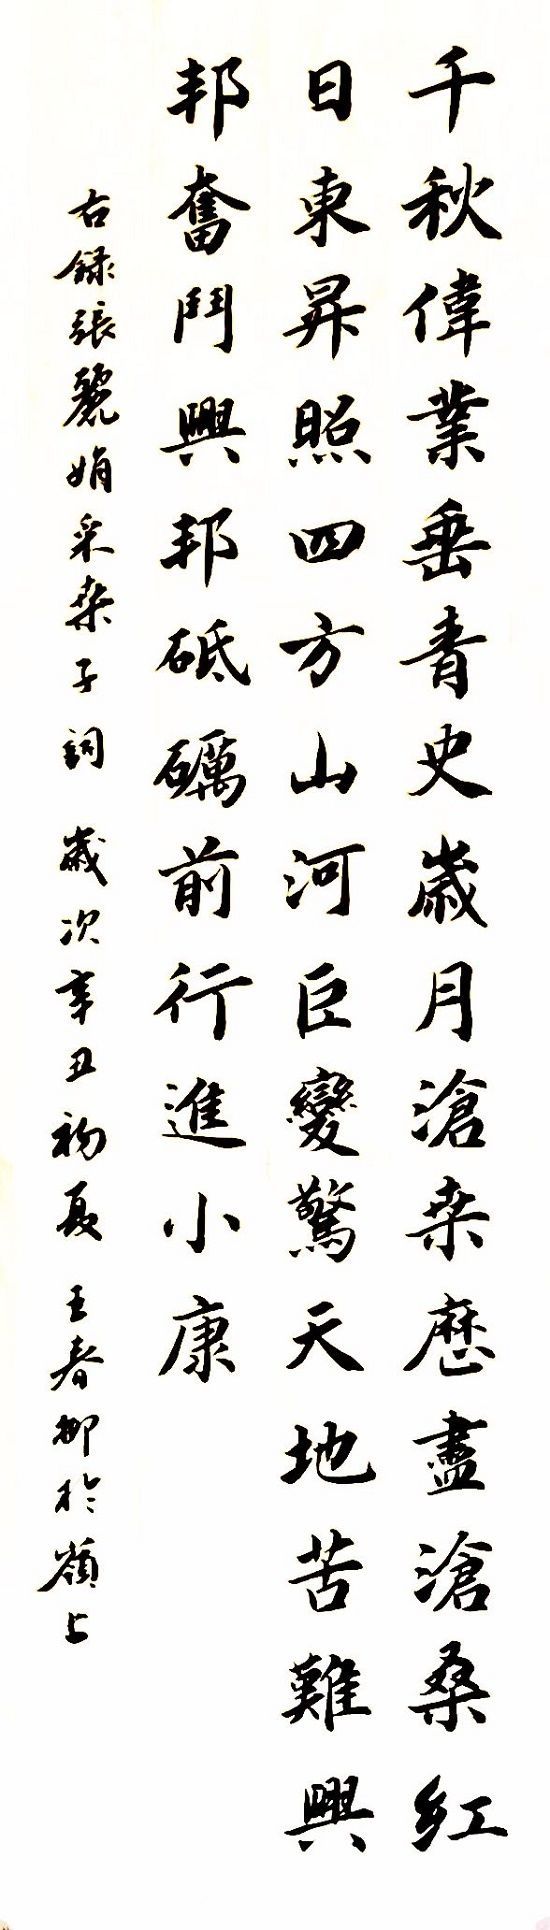 千秋偉業垂青史歲月滄桒歷盡滄桑紅
日東昇照四方山河臣變驚天地苦難興
邦奮鬥興邦砥礪前行進小康
右錄張麗娟采桒子詞 歲次辛丑初夏 王春柳於嶺上